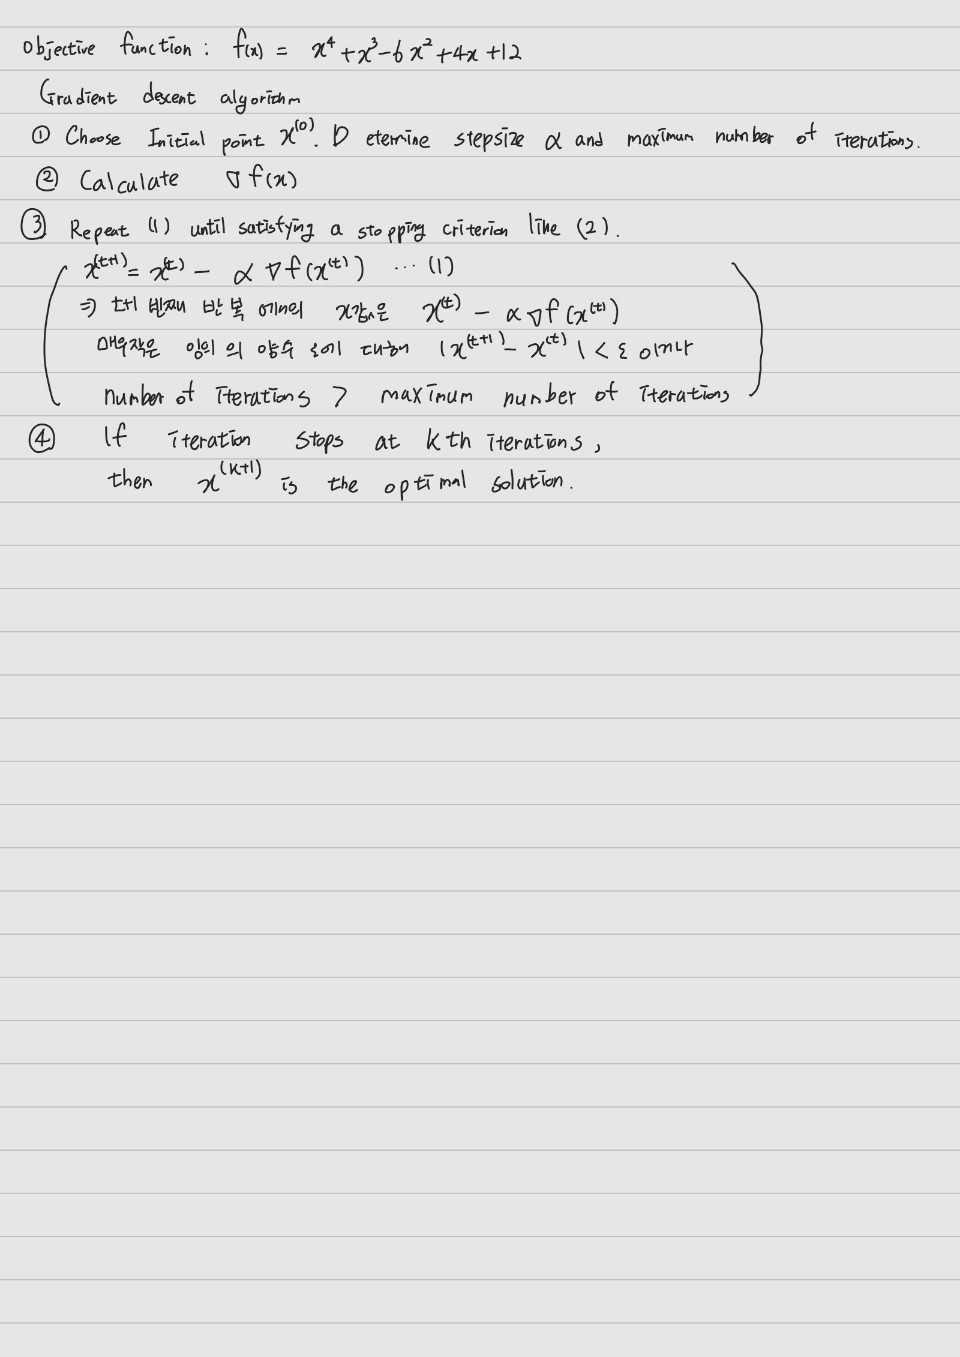 Objective function : f(x) = x⁴+x³-6x²+4x+12
Gradient descent algorithm
① Choose Initial point x⁽⁰⁾. Detemine stepsize α and maximum number of iterations.
② Calculate ∇f(x)
③ Repeat (1) until satisfying a stopping criterion like (2).
x⁽ᵗ⁺¹⁾ = x⁽ᵗ⁾ - α∇f(x⁽ᵗ⁾) ⋯ (1)
⇒ t+1 번째 반복 에서의 x값은 x⁽ᵗ⁾ - α∇f(x⁽ᵗ⁾)
매우작은 임의 의 양수 ε에 대해 |x⁽ᵗ⁺¹⁾ - x⁽ᵗ⁾| < ε 이거나
number of iterations > maximum number of iterations
④ If iteration stops at kth iterations,
then x⁽ᵏ⁺¹⁾ is the optimal solution.